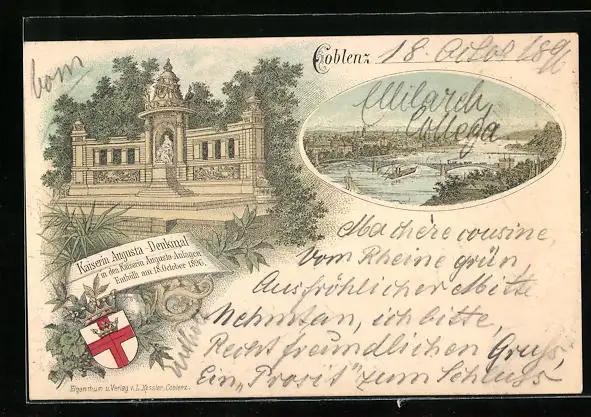 Coblenz 18. 1896
vom
Collega
Kaiserin Augusta-Denkmal
in den Kaiserin Augusta-Anlagen
Enthüllt am 18. October 1896.
Ma chère cousine,
Vom Rheine grün
Aus fröhlicher Mitte
Nehmt an, ich bitte,
Recht freundlichen Gruss,
Ein „Prosit" zum Schluss
Eigenthum u. Verlag v. L. Kessler, Coblenz.